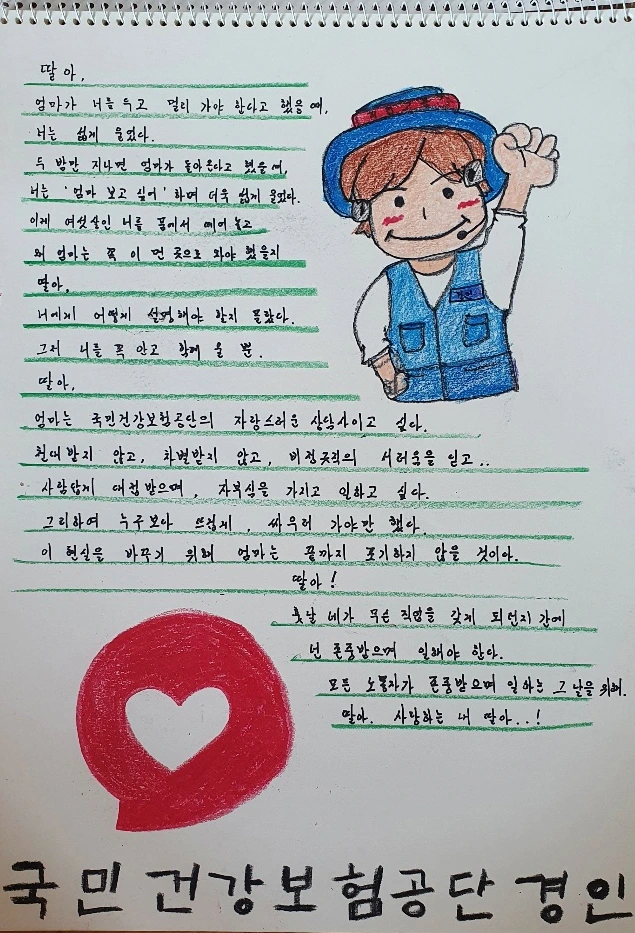 딸아,
엄마가 너를 두고 멀리 가야 한다고 했을 때,
너는 섧게 울었다.
두 밤만 지나면 엄마가 돌아온다고 했을 때,
너는 '엄마 보고 싶어' 하며 더욱 섧게 울었다.
이제 여섯살인 너를 품에서 떼어 놓고
왜 엄마는 꼭 이 먼 곳으로 와야 했을지
딸아,
너에게 어떻게 설명해야 할지 몰랐다.
그저 너를 꼭 안고 함께 울 뿐.
딸아,
엄마는 국민건강보험공단의 자랑스러운 상담사이고 싶다.
천대받지 않고, 차별받지 않고, 비정규직의 서러움을 딛고..
사람답게 대접받으며, 자부심을 가지고 일하고 싶다.
그리하여 누구보다 뜨겁게, 싸우러 가야만 했다.
이 현실을 바꾸기 위해 엄마는 끝까지 포기하지 않을 것이야.
딸아!
훗날 네가 무슨 직업을 갖게 되던지 간에
넌 존중받으며 일해야 한다.
모든 노동자가 존중받으며 일하는 그 날을 위해.
딸아. 사랑하는 내 딸아..!
국민건강보험공단 경인